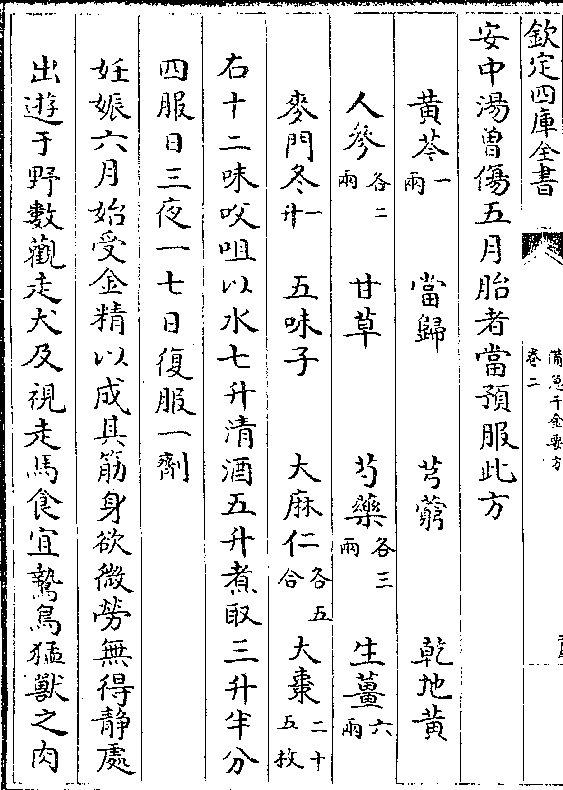 欽定四庫全書
備急千金要方
卷二
安中湯曾傷五月胎者當預服此方
黄芩一兩　當歸　芎藭　乾地黄
人參各二兩　甘草　芍藥各三兩　生薑六兩
麥門冬一升　五味子　大麻仁各五合　大棗二十五枚
右十二味㕮咀以水七升清酒五升煮取三升半分
四服日三夜一七日復服一劑
妊娠六月始受金精以成其筋身欲微勞無得静處
出遊于野數觀走犬及視走馬食宜鷙鳥猛獸之肉